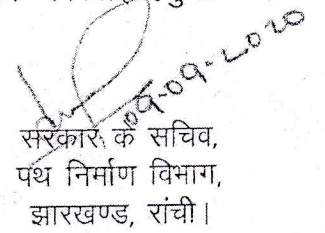 09-09-2020
सरकार के सचिव,
पथ निर्माण विभाग,
झारखण्ड, रांची।